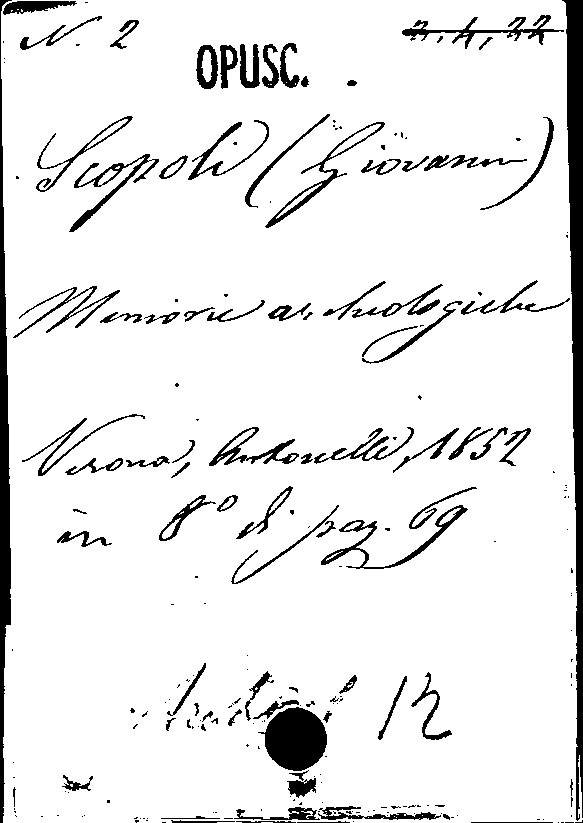 N. 2
OPUSC.
Scopoli (Giovanni)
Memorie archeologiche
Verona, Antonelli, 1852
in 8° di pag. 69
12